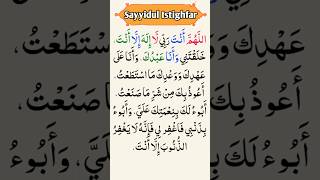 Sayyidul Istighfar
اللَّهُمَّ أَنْتَ رَبِّي لَا إِلَهَ إِلَّا أَنْتَ،
خَلَقْتَنِي وَأَنَا عَبْدُكَ وَأَنَا عَلَى
عَهْدِكَ وَوَعْدِكَ مَا اسْتَطَعْتُ،
أَعُوذُ بِكَ مِنْ شَرِّ مَا صَنَعْتُ،
أَبُوءُ لَكَ بِنِعْمَتِكَ عَلَيَّ، وَأَبُوءُ
بِذَنْبِي فَاغْفِرْ لِي فَإِنَّهُ لَا يَغْفِرُ
الذُّنُوبَ إِلَّا أَنْتَ.